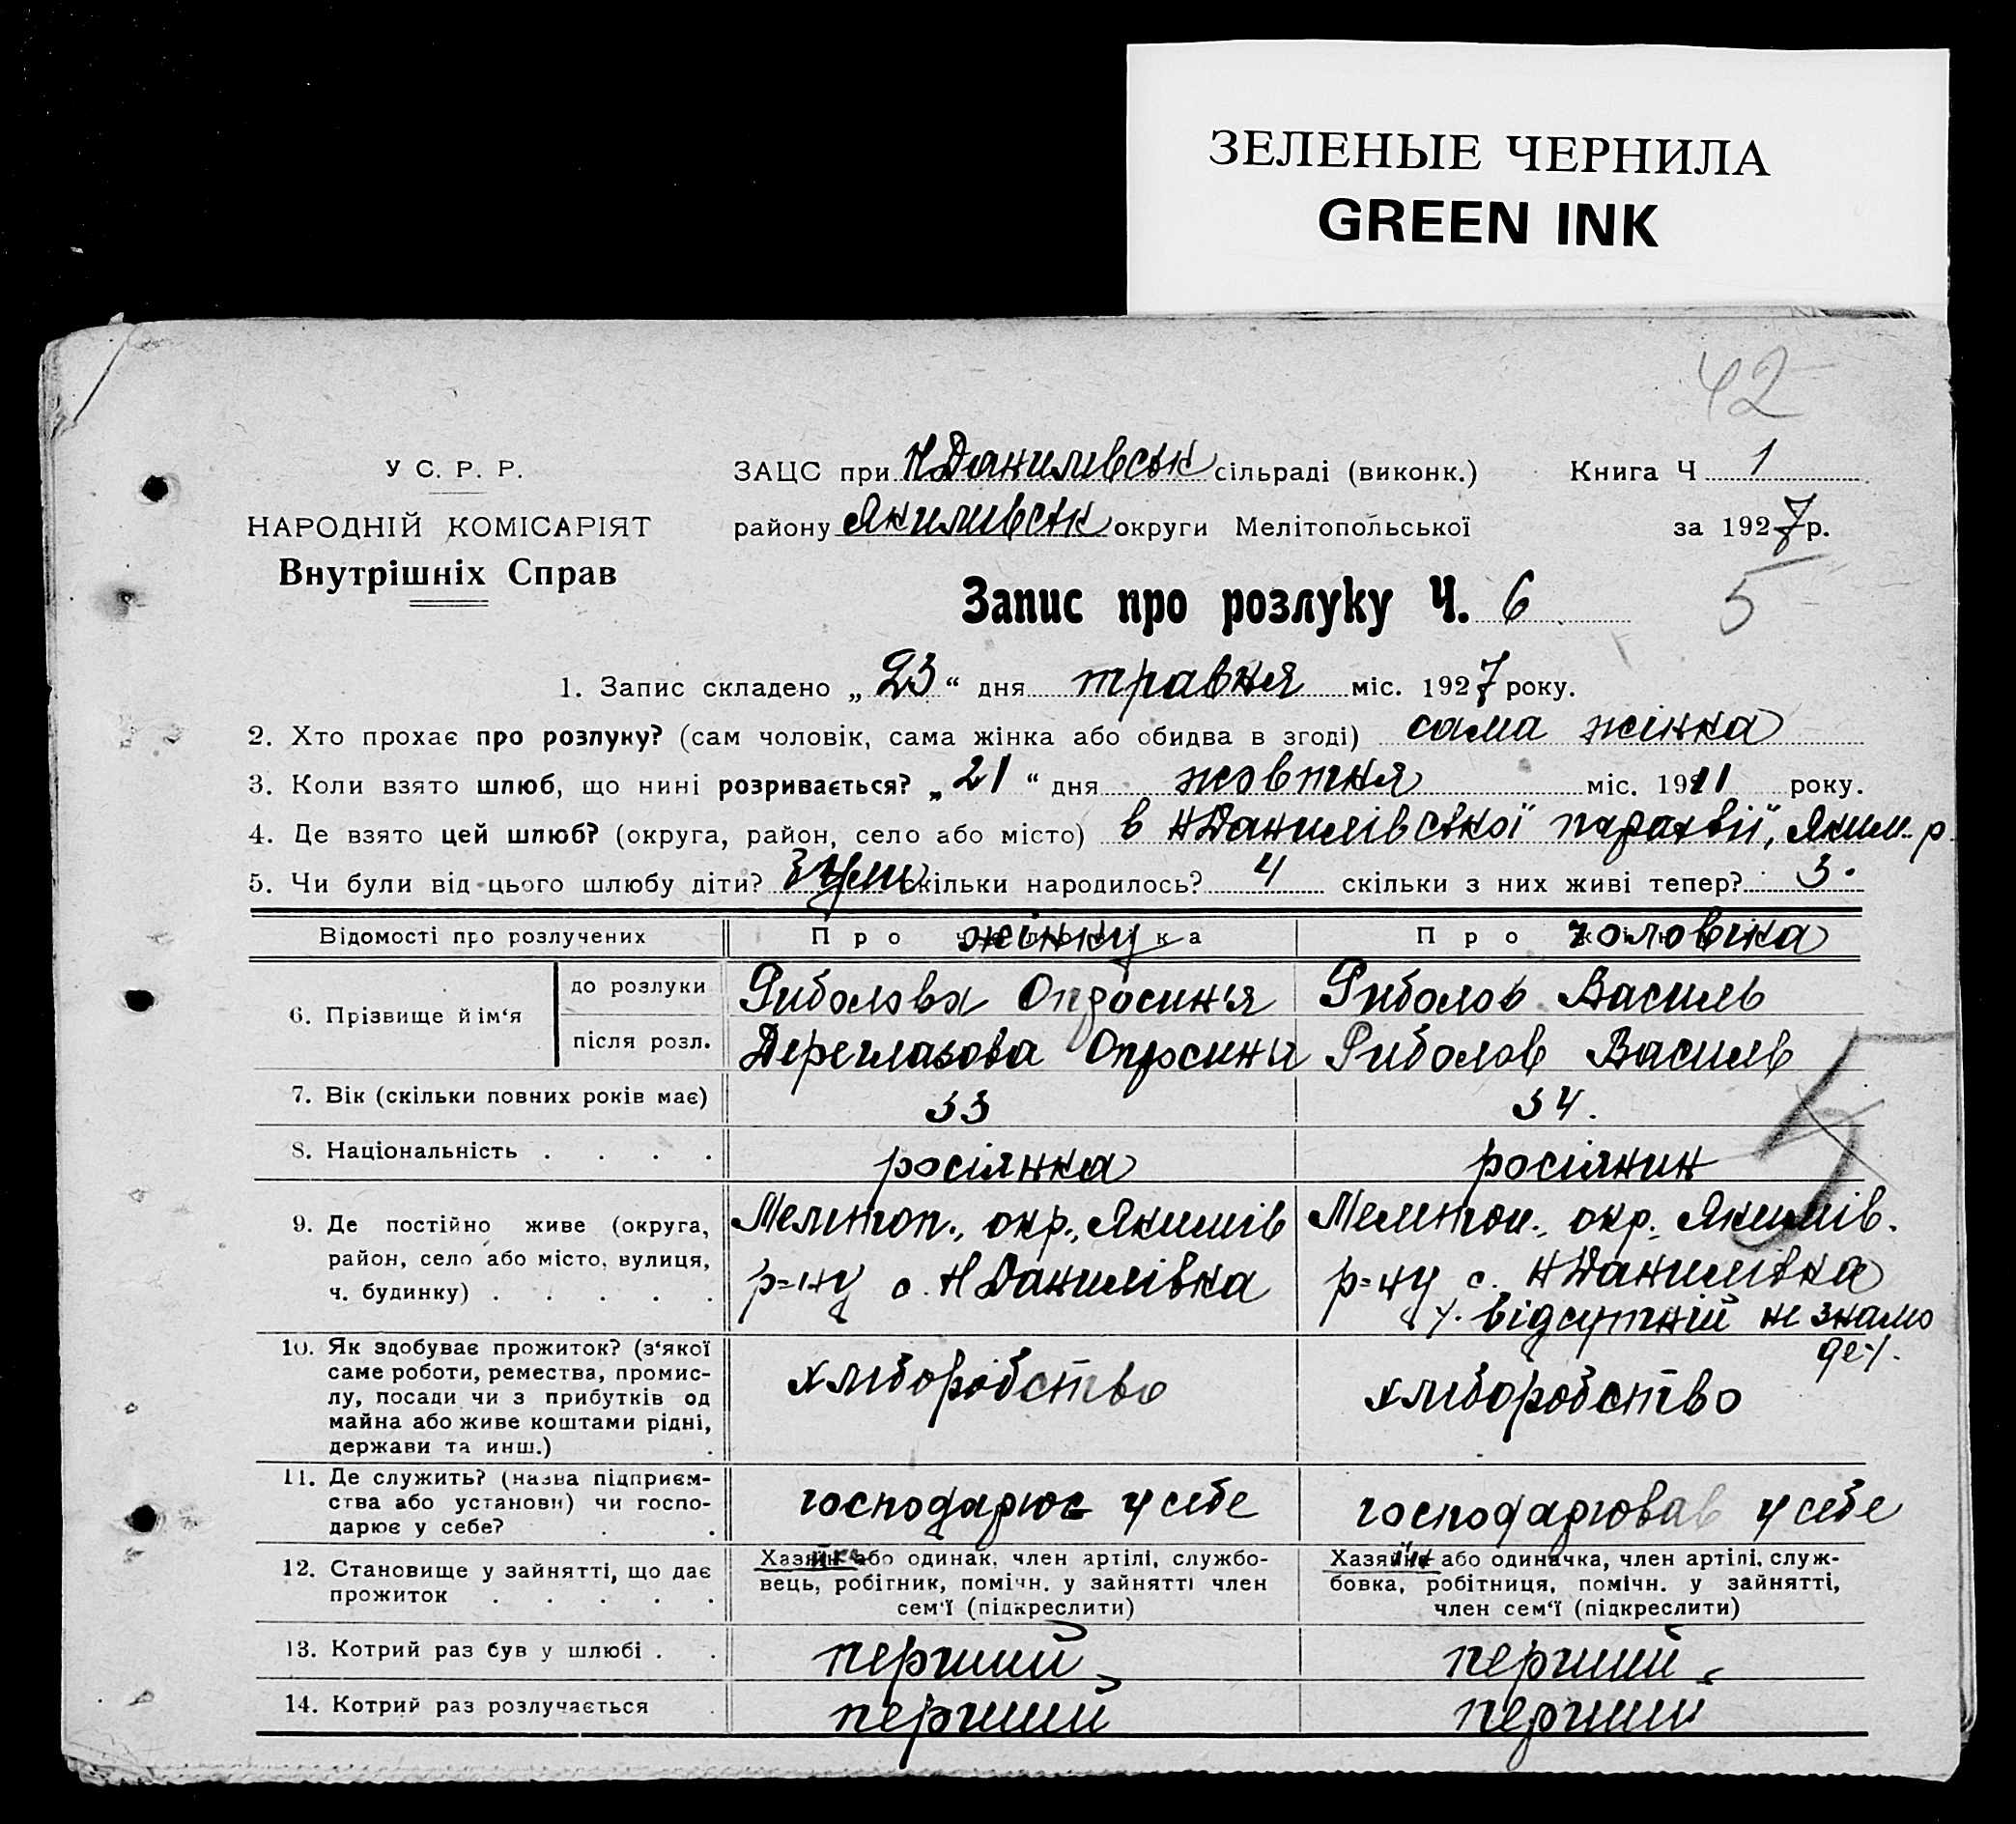 ЗЕЛЕНЫЕ ЧЕРНИЛА
GREEN INK
42
У С. Р. Р.
НАРОДНІЙ КОМІСАРІЯТ
Внутрішніх Справ
ЗАЦС при Н Данилівськ сільраді (виконк.) Книга Ч 1
району Якимівськ округи Мелітопольської за 1927 р.
Запис про розлуку Ч. 6
5
1. Запис складено „23“ дня травня міс. 1927 року.
2. Хто прохає про розлуку? (сам чоловік, сама жінка або обидва в згоді) сама жінка
3. Коли взято шлюб, що нині розривається? „21“ дня жовтня міс. 1911 року.
4. Де взято цей шлюб? (округа, район, село або місто) в Н Данилівської парахвії, Яким. р.
5. Чи були від цього шлюбу діти? скільки народилось? 4 скільки з них живі тепер? 3.
Відомості про розлучених Про жінку Про чоловіка
6. Прізвище й ім‘я до розлуки Риболова Опросин'я Риболов Василь
після розл. Дереглазова Опросиня Риболов Василь
7. Вік (скільки повних років має) 33 34.
8. Національність росіянка росіянин
9. Де постійно живе (округа, район, село або місто, вулиця, ч. будинку) Мелітоп., окр., Якимів Мелітоп., окр. Якимів.
р=ну с. Н Данилівка р=ну с. Н Данилівка
відсутній не знамо
де
10. Як здобуває прожиток? (з‘якої саме роботи, ремества, промислу, посади чи з прибутків од майна або живе коштами рідні, держави та инш.) хліборобство хліборобство
11. Де служить? (назва підприємства або установи) чи господарює у себе? господарює у себе господарював у себе
12. Становище у зайнятті, що дає прожиток
Хазяйка або одинак, член артілі, службовець, робітник, помічн. у зайнятті член сем‘ї (підкреслити)
Хазяїн або одиначка, член артілі, службовка, робітниця, помічн. у зайнятті, член сем‘ї (підкреслити)
13. Котрий раз був у шлюбі перший перший
14. Котрий раз розлучається перший перший
5